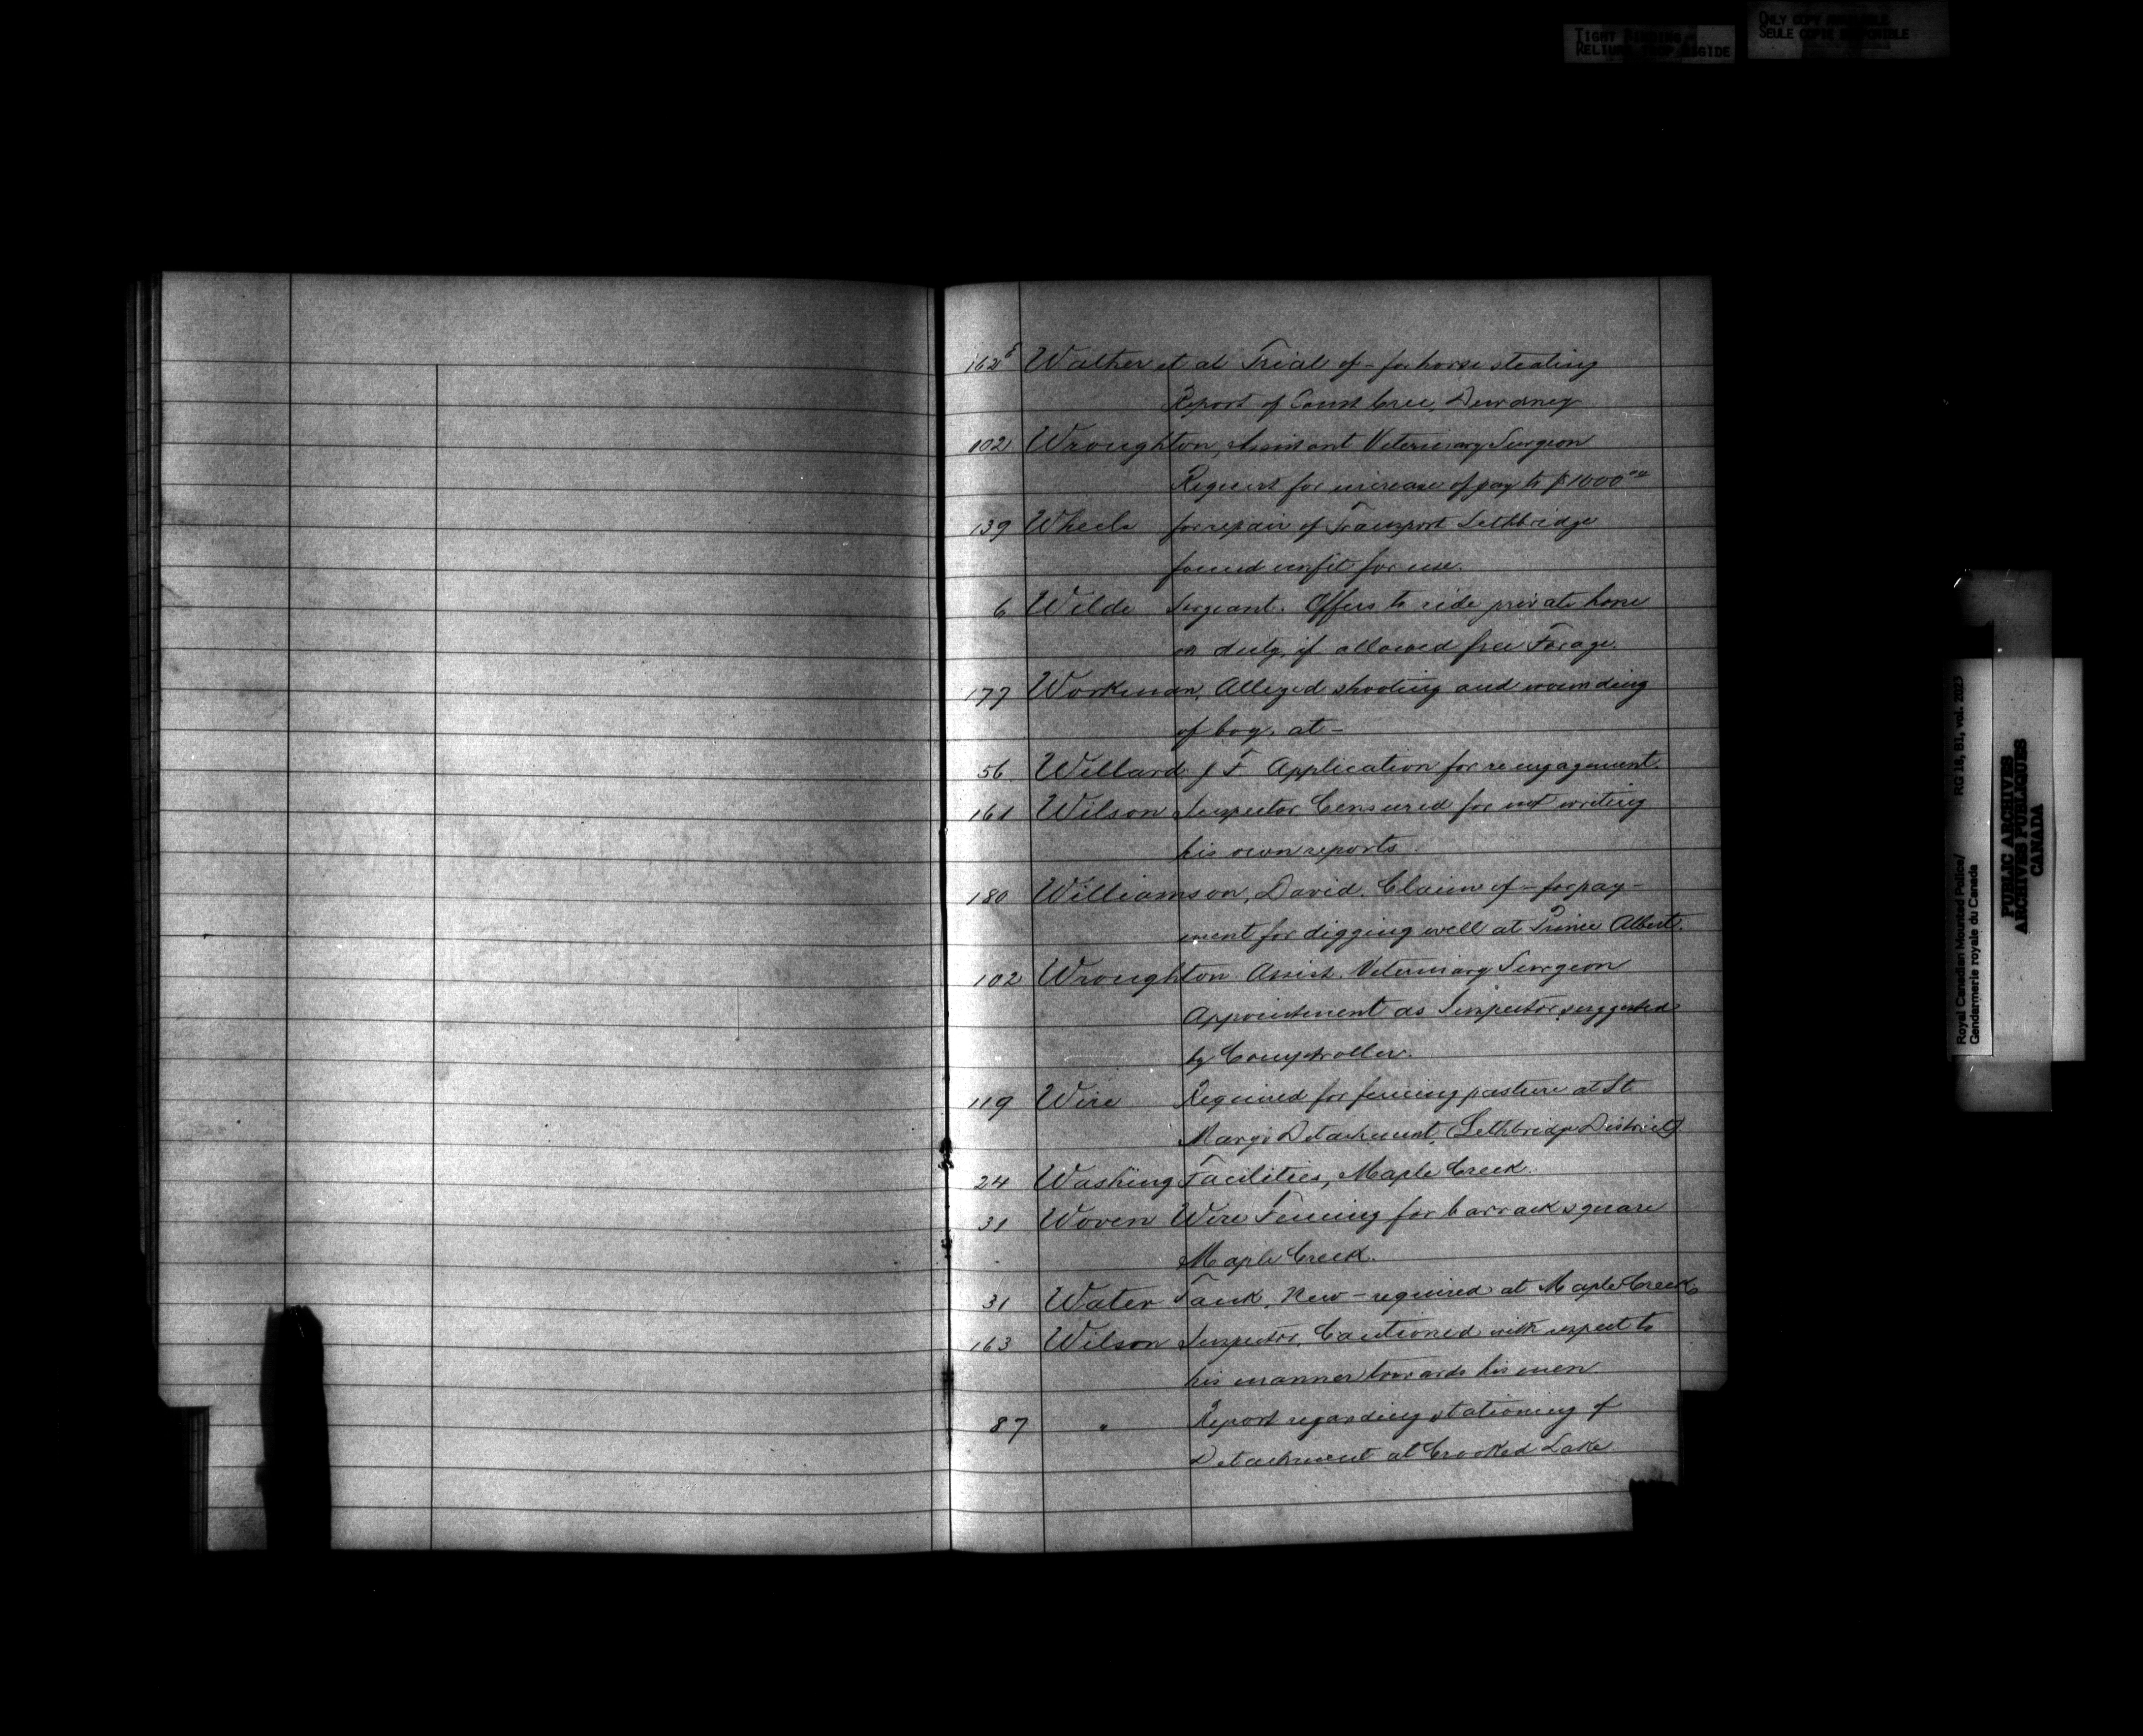 TIGHT BINDING
RELIURE TROP RIGIDE
ONLY COPY AVAILABLE
SEULE COPIE DISPONIBLE
162 Walther et al Trial of - for horse stealing
Report of Const Cree, Dewdney
102 Wroughton, Assistant Veterinary Surgeon
Request for increase of pay to $1000.00
139 Wheels for repair of Transport Lethbridge
found unfit for use.
6 Wilde Sergeant. Offers to ride private horse
on duty, if allowed free Forage.
177 Workman, Alleged shooting and wounding
of boy. at -
56. Willard J F Application for re engagement.
161 Wilson Inspector Censured for not writing
his own reports
180 Williamson, David. Claim of - for pay-
ment for digging well at Prince Albert.
102 Wroughton Assist. Veterinary Surgeon
Appointment as Inspector suggested
by Comptroller.
119 Wire Required for fencing pasture at St.
Mary's Detachment, (Lethbridge District)
24 Washing Facilities, Maple Creek.
31 Woven Wire Fencing for barrack square
Maple Creek.
31 Water Tank, New - required at Maple Creek
163 Wilson Inspector, Cautioned with respect to
his manner towards his men.
87 " Report regarding stationing of
Detachment at Crooked Lake
Royal Canadian Mounted Police/ RG 18, B1, vol. 2023
Gendarmerie royale du Canada
PUBLIC ARCHIVES
ARCHIVES PUBLIQUES
CANADA